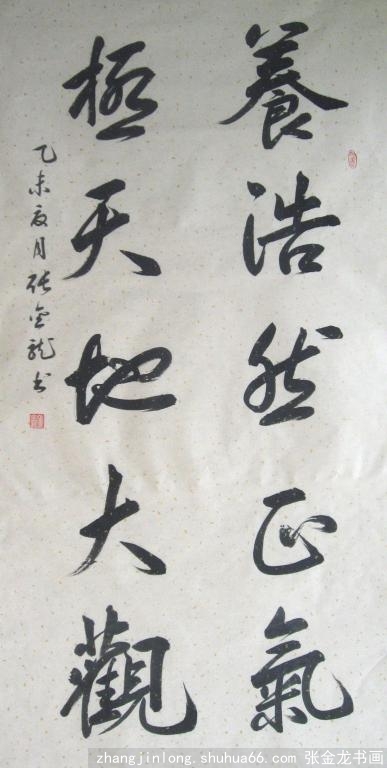 養浩然正氣
極天地大觀
乙未夏月張金龍书
zhangjinlong.shuhua66.com 张金龙书画